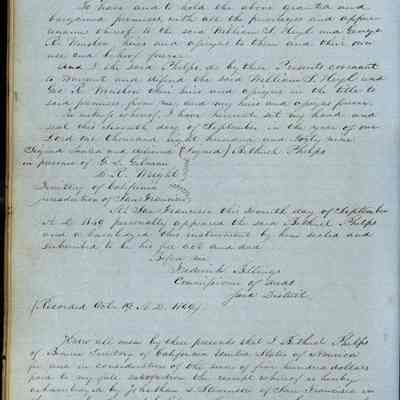 To have and to hold the above granted and
bargained premises, with all the privileges and appur-
tenances thereof to the said William S. Heyl and George
R. Winslow heirs and assigns to them and their own
use and behoof forever.
And I the said Phelps, do by these Presents covenant
to warrant and defend the said William S. Heyl and
Geo R. Winslow their heirs and assigns in the title to
said premises, from me, and my heirs and assigns forever.
In witness whereof, I have hereunto set my hand and
seal this seventh day of September in the year of our
Lord one thousand eight hundred and forty nine.
Signed Sealed and delivered (Signed) Bethuel Phelps
in presence of G. L. Gilman
Wright
Territory of California
jurisdiction of San Francisco
At San Francisco this seventh day of September
A.D. 1849 personally appeared the said Bethuel Phelps
and acknowledged this instrument by him sealed and
subscribed to be his free act and deed
Before me
Frederick Billings
Commissioner of Deeds
said District.
(Recorded Oct. 19, A.D. 1849)
Know all men by these presents that I Bethuel Phelps
of Territory of California United States of America
for and in consideration of the sum of five hundred dollars
paid to my full satisfaction the receipt whereof is hereby
acknowledged by Jonathan S. of San Francisco in